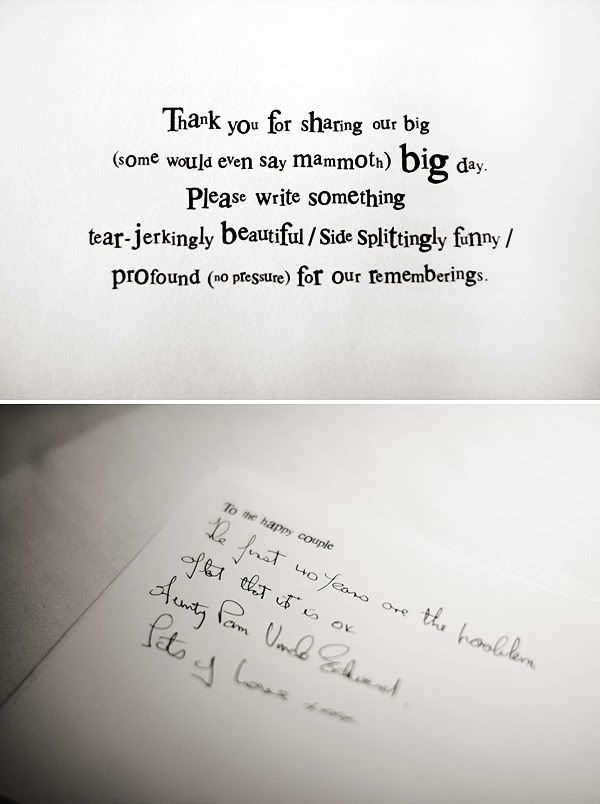 Thank you for sharing our big
(some would even say mammoth) big day.
Please write something
tear-jerkingly beautiful / Side Splittingly funny /
profound (no pressure) for our rememberings.
To the happy couple
The first 40 years are the problem
after that it is ok
Aunty Pam Uncle Edward.
Lots of Love xxxx